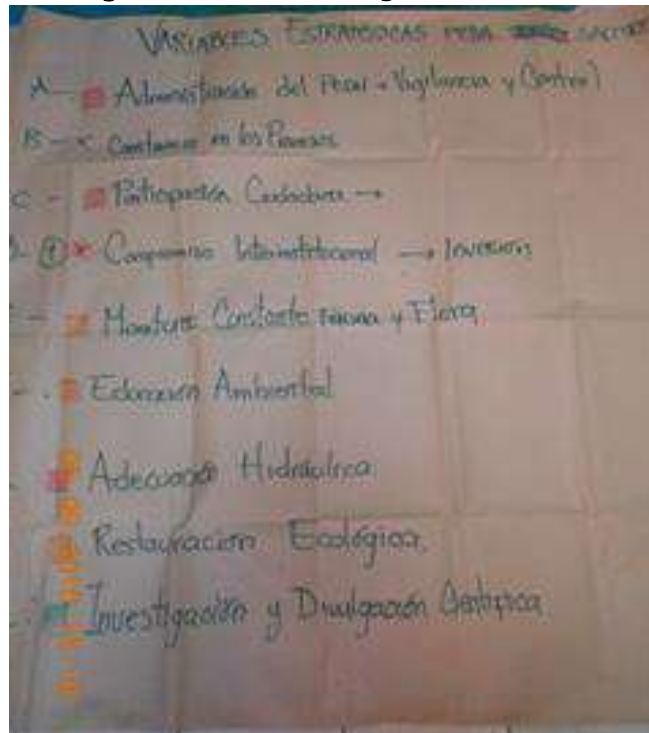 VARIABLES ESTRATEGICAS PARA
A - Administración del PEDH - Vigilancia y Control
B - Constancia en los Procesos
C - Participación Ciudadana →
① Compromiso Interinstitucional → Inversion
Monitoreo Constante Fauna y Flora
Educación Ambiental
Adecuación Hidráulica
Restauración Ecológica.
Investigación y Divulgación Científica